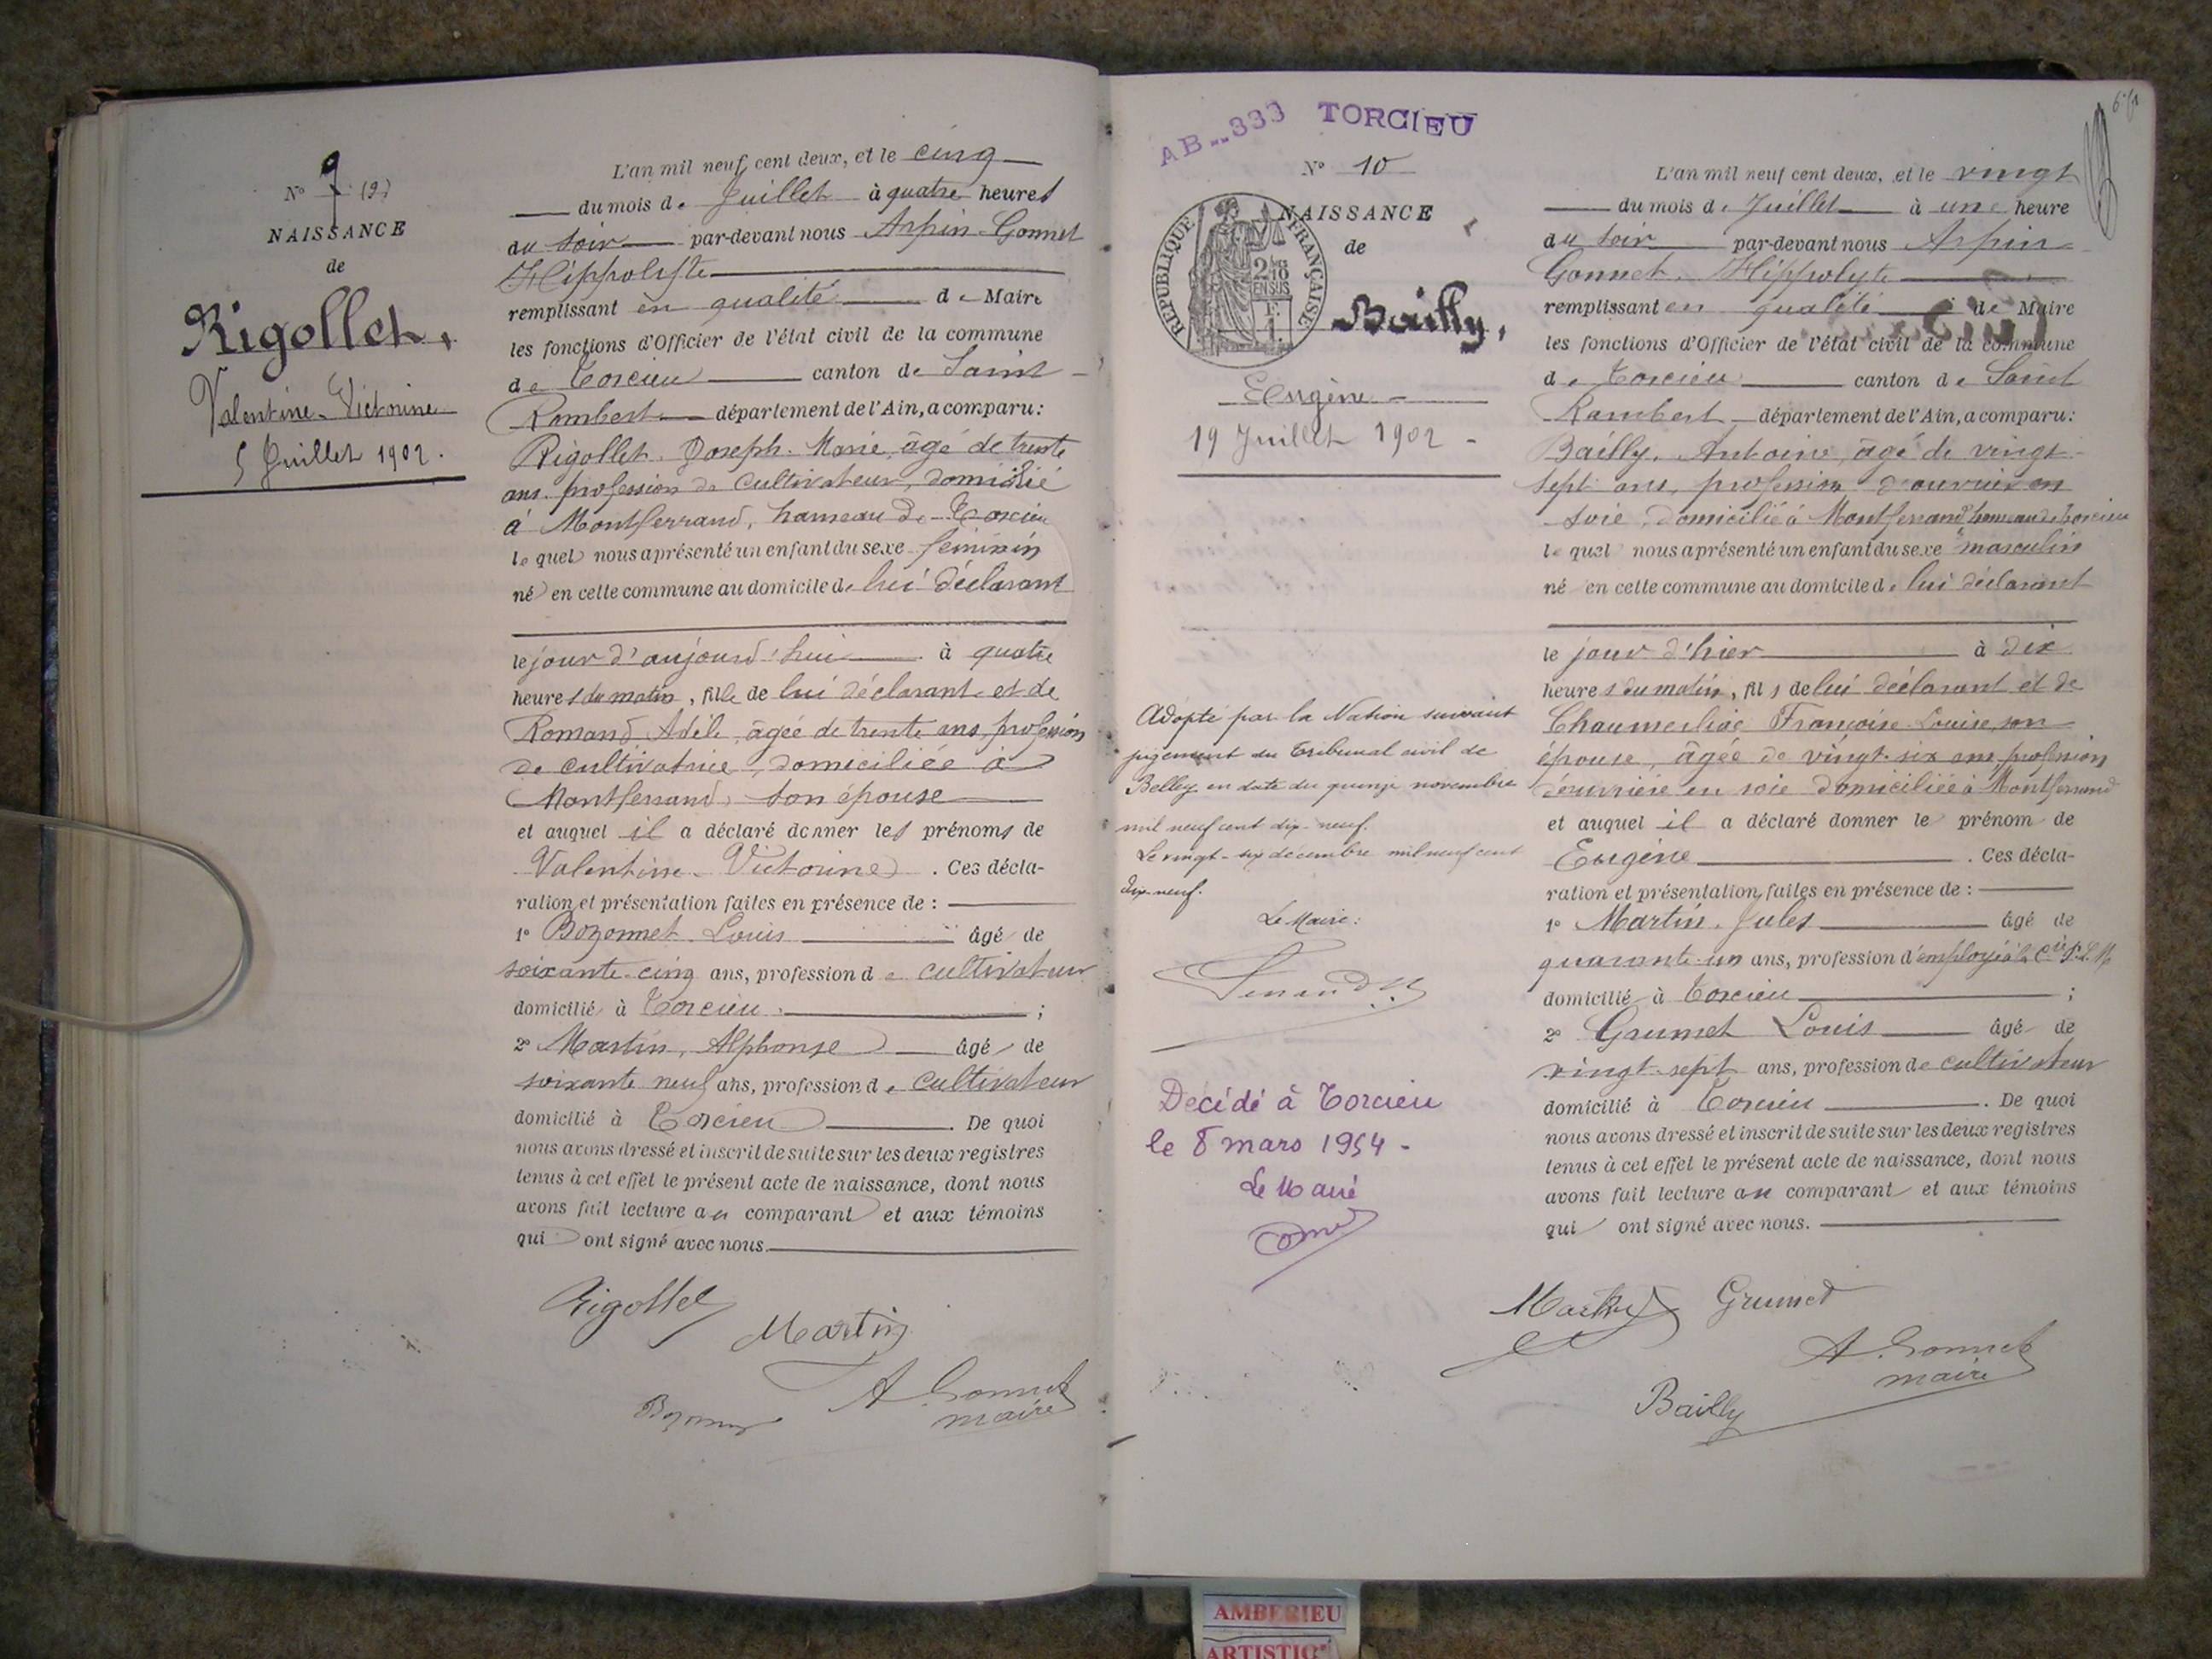 N° 9 (9)
NAISSANCE
de
Rigollet,
Valentine-Victorine
5 Juillet 1902.
L'an mil neuf cent deux, et le cinq
du mois de Juillet à quatre heures
du soir par-devant nous Arpin-Gonnet
Hippolyte
remplissant en qualité de Maire
les fonctions d'Officier de l'état civil de la commune
de Torcieu canton de Saint
Rambert département de l'Ain, a comparu:
Rigollet Joseph-Marie, âgé de trente
ans, profession de Cultivateur, domicilié
à Montferrand, hameau de Torcieu
lequel nous a présenté un enfant du sexe féminin
né en cette commune au domicile de lui déclarant
le jour d'aujourd'hui à quatre
heures du matin, fille de lui déclarant et de
Romand Adèle, âgée de trente ans, profession
de cultivatrice, domiciliée à
Montferrand, son épouse
et auquel il a déclaré donner les prénoms de
Valentine Victorine. Ces décla-
ration et présentation failes en présence de :
1° Bozonnet Louis âgé de
soixante-cinq ans, profession de cultivateur
domicilié à Torcieu ;
2° Martin, Alphonse âgé de
soixante neuf ans, profession de Cultivateur
domicilié à Torcieu. De quoi
nous avons dressé et inscrit de suite sur les deux registres
tenus à cet effet le présent acte de naissance, dont nous
avons fait lecture au comparant et aux témoins
qui ont signé avec nous.
Rigollet
Martin
A. Gonnet
maire
AB 333 TORCIEU
N° 10
NAISSANCE
de
RÉPUBLIQUE FRANÇAISE
Bailly,
Eugène
19 Juillet 1902 -
Adopté par la Nation suivant
jugement du Tribunal civil de
Belley en date du quinze novembre
mil neuf cent dix-neuf.
Le vingt-six décembre mil neuf cent
dix-neuf.
Le Maire:
Décédé à Torcieu
le 8 mars 1954 -
Le Maire
L'an mil neuf cent deux, et le vingt
du mois de Juillet à une heure
du soir par-devant nous Arpin
Gonnet, Hippolyte
remplissant en qualité de Maire
les fonctions d'Officier de l'état civil de la commune
de Torcieu canton de Saint
Rambert département de l'Ain, a comparu:
Bailly, Antoine, âgé de vingt-
sept ans, profession d'ouvrier en
soie, domicilié à Montferrand hameau de Torcieu
lequel nous a présenté un enfant du sexe masculin
né en cette commune au domicile de lui déclarant
le jour d'hier à dix
heures du matin, fils de lui déclarant et de
Françoise Louise, son
épouse, âgée de vingt-six ans, profession
d'ouvrière en soie domiciliée à Montferrand
et auquel il a déclaré donner le prénom de
Eugène. Ces décla-
ration et présentation failes en présence de :
1° Martin, Jules âgé de
quarante-un ans, profession d'employé à la Cie P.L.M.
domicilié à Torcieu ;
2° Grumet Louis âgé de
vingt-sept ans, profession de cultivateur
domicilié à Torcieu. De quoi
nous avons dressé et inscrit de suite sur les deux registres
tenus à cet effet le présent acte de naissance, dont nous
avons fait lecture au comparant et aux témoins
qui ont signé avec nous.
Martin Grumet
A. Gonnet
maire
Bailly
AMBERIEU
ARTISTIC